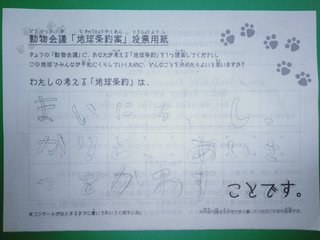 動物会議「地球条約案」投票用紙
きょうの「動物会議」に、あなたが考える「地球条約」を1つ提案してください。
この地球でみんなが平和にくらしていくために、どんなことを決めたらよいと思いますか？
わたしの考える「地球条約」は、
まいにち、しっ
かりと、あいさ
つをかわす
ことです。